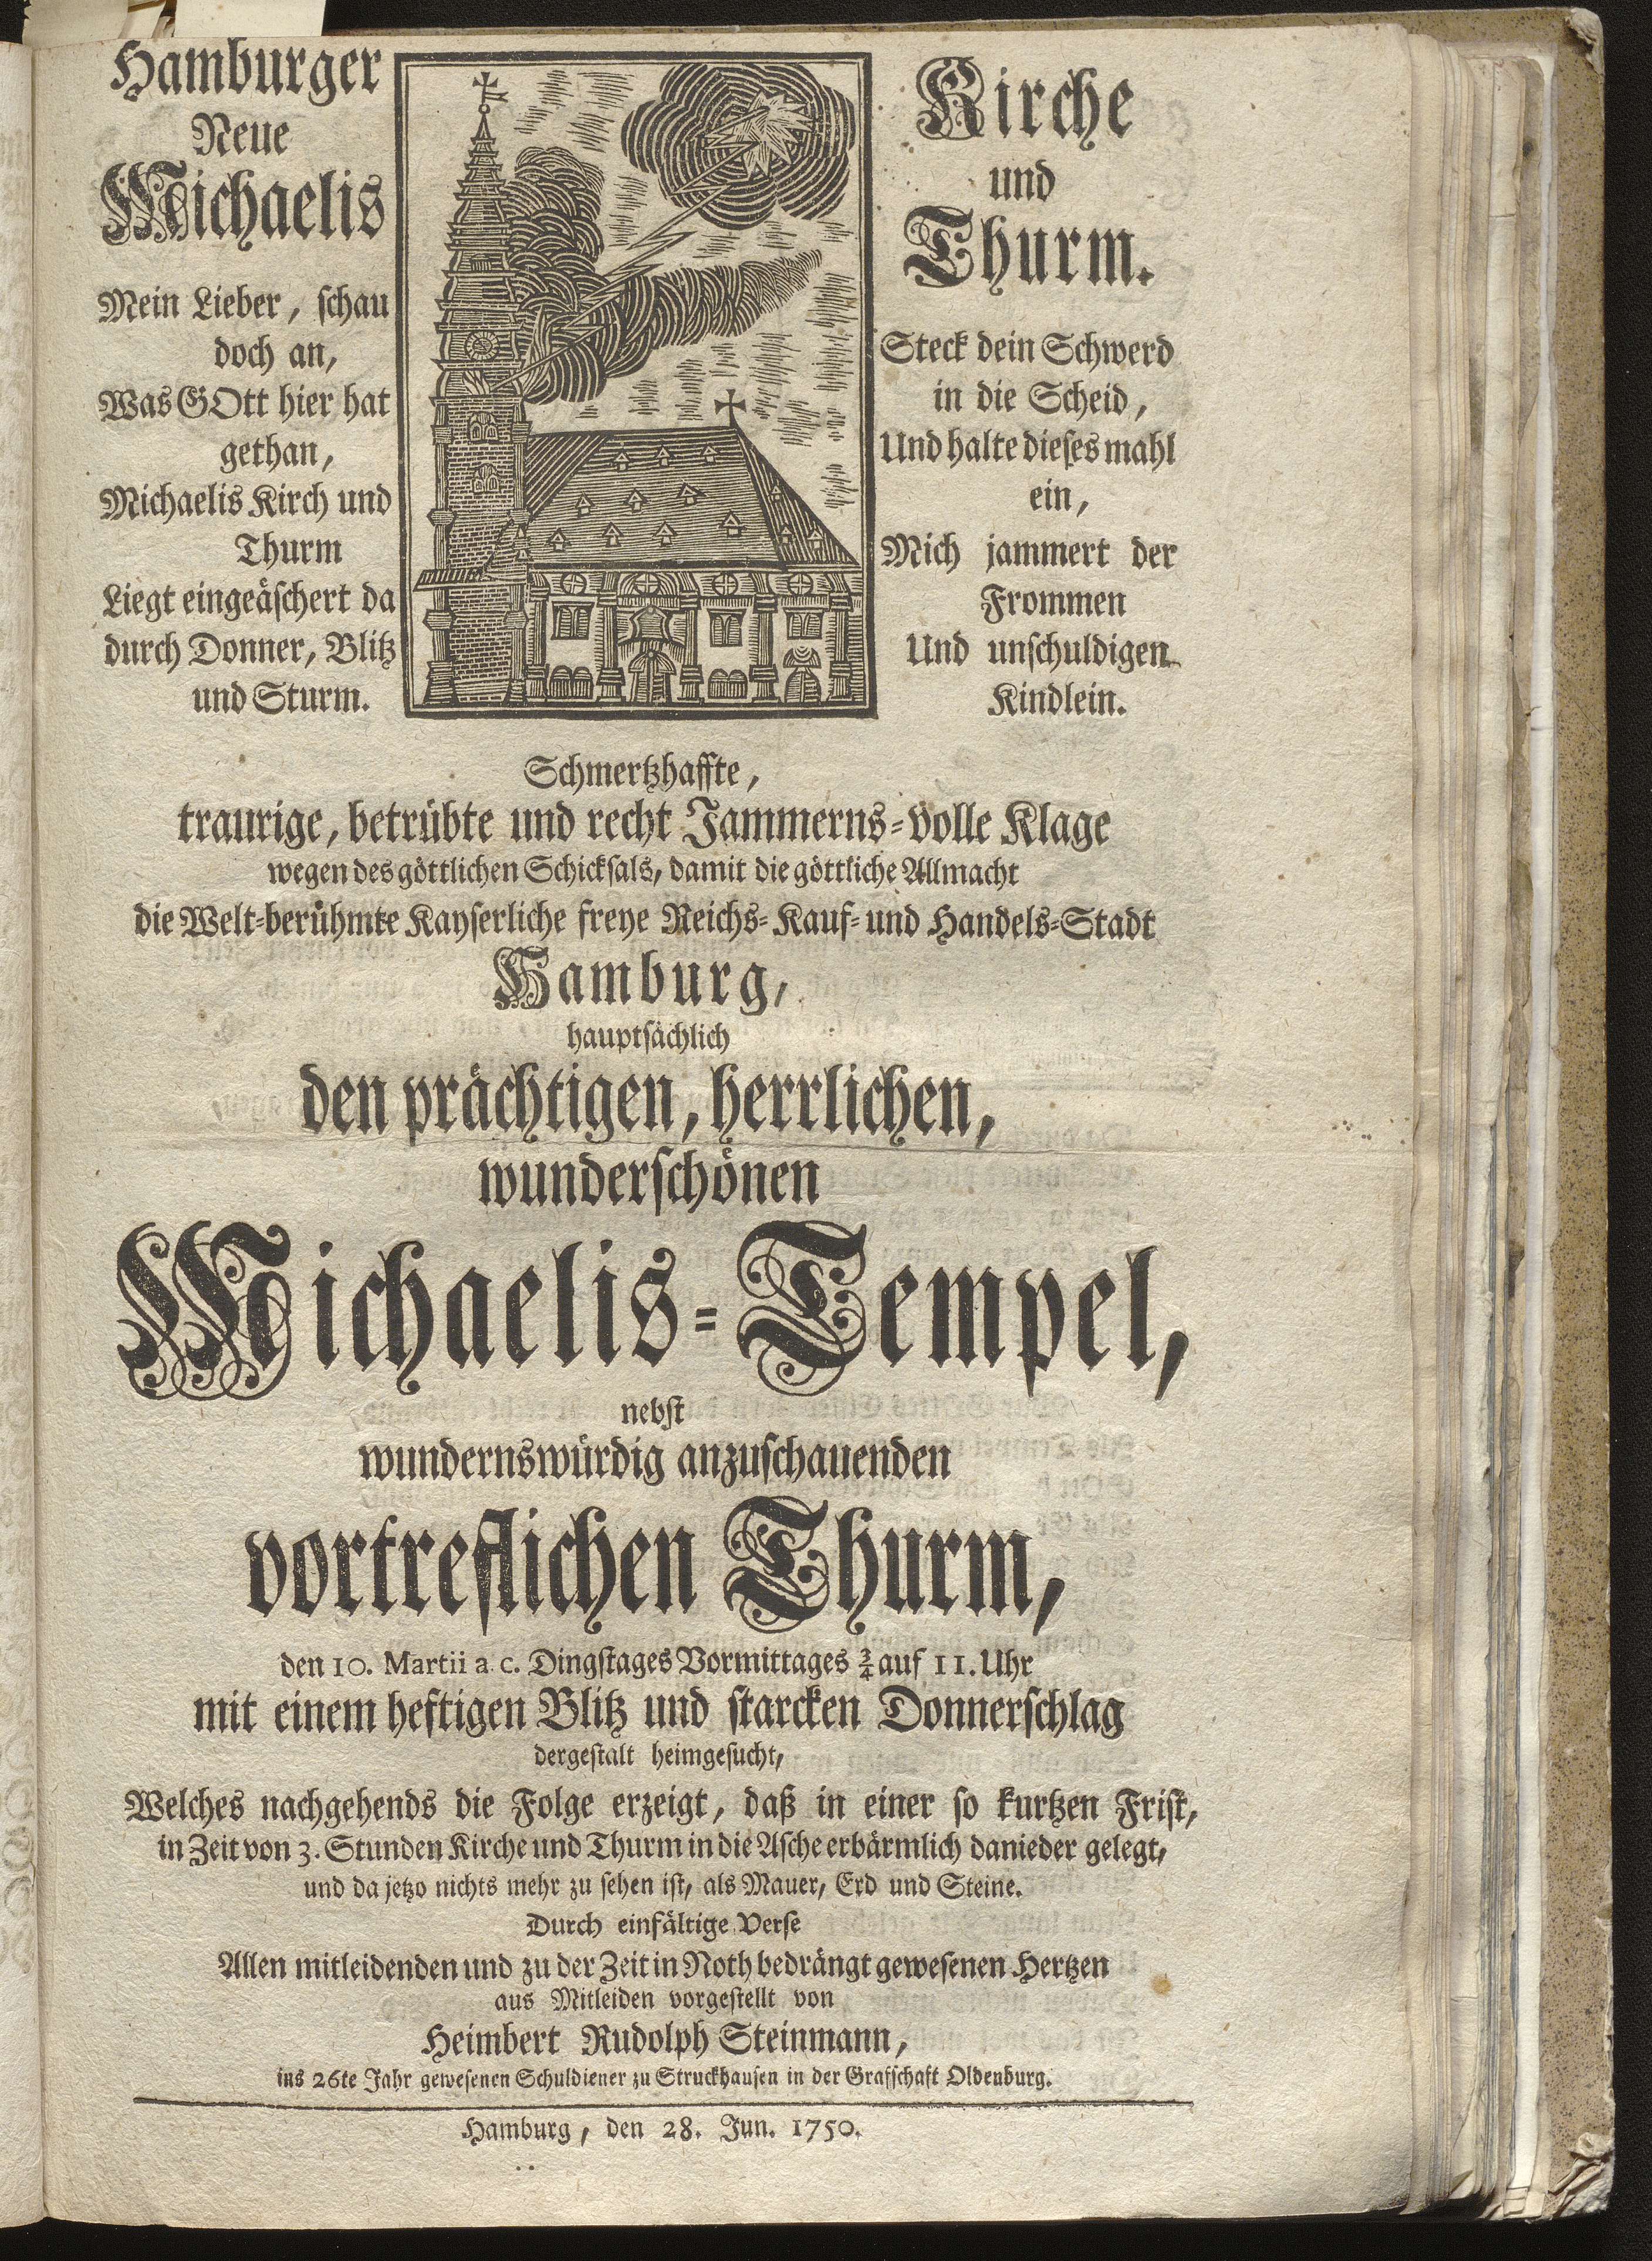 Hamburger
Neue
Michaelis
Mein Lieber, schau
doch an,
Was GOtt hier hat
gethan,
Michaelis Kirch und
Thurm
Liegt eingeäschert da
durch Donner, Blitz
und Sturm.
Kirche
und
Thurm.
Steck dein Schwerd
in die Scheid,
Und halte dieses mahl
ein,
Mich jammert der
Frommen
Und unschuldigen
Kindlein.
Schmertzhaffte,
traurige, betrübte und recht Jammerns-volle Klage
wegen des göttlichen Schicksals, damit die göttliche Allmacht
die Welt-berühmte Kayserliche freye Reichs- Kauf- und Handels-Stadt
Hamburg,
hauptsächlich
den prächtigen, herrlichen,
wunderschönen
Michaelis-Tempel,
nebst
wundernswürdig anzuschauenden
vortreflichen Thurm,
den 10. Martii a. c. Dingstages Vormittages ¾ auf 11. Uhr
mit einem heftigen Blitz und starcken Donnerschlag
dergestalt heimgesucht,
Welches nachgehends die Folge erzeigt, daß in einer so kurtzen Frist,
in Zeit von 3. Stunden Kirche und Thurm in die Asche erbärmlich danieder gelegt,
und da jetzo nichts mehr zu sehen ist, als Mauer, Erd und Steine.
Durch einfältige Verse
Allen mitleidenden und zu der Zeit in Noth bedrängt gewesenen Hertzen
aus Mitleiden vorgestellt von
Heimbert Rudolph Steinmann,
ins 26te Jahr gewesenen Schuldiener zu Struckhausen in der Grafschaft Oldenburg.
Hamburg, den 28. Jun. 1750.